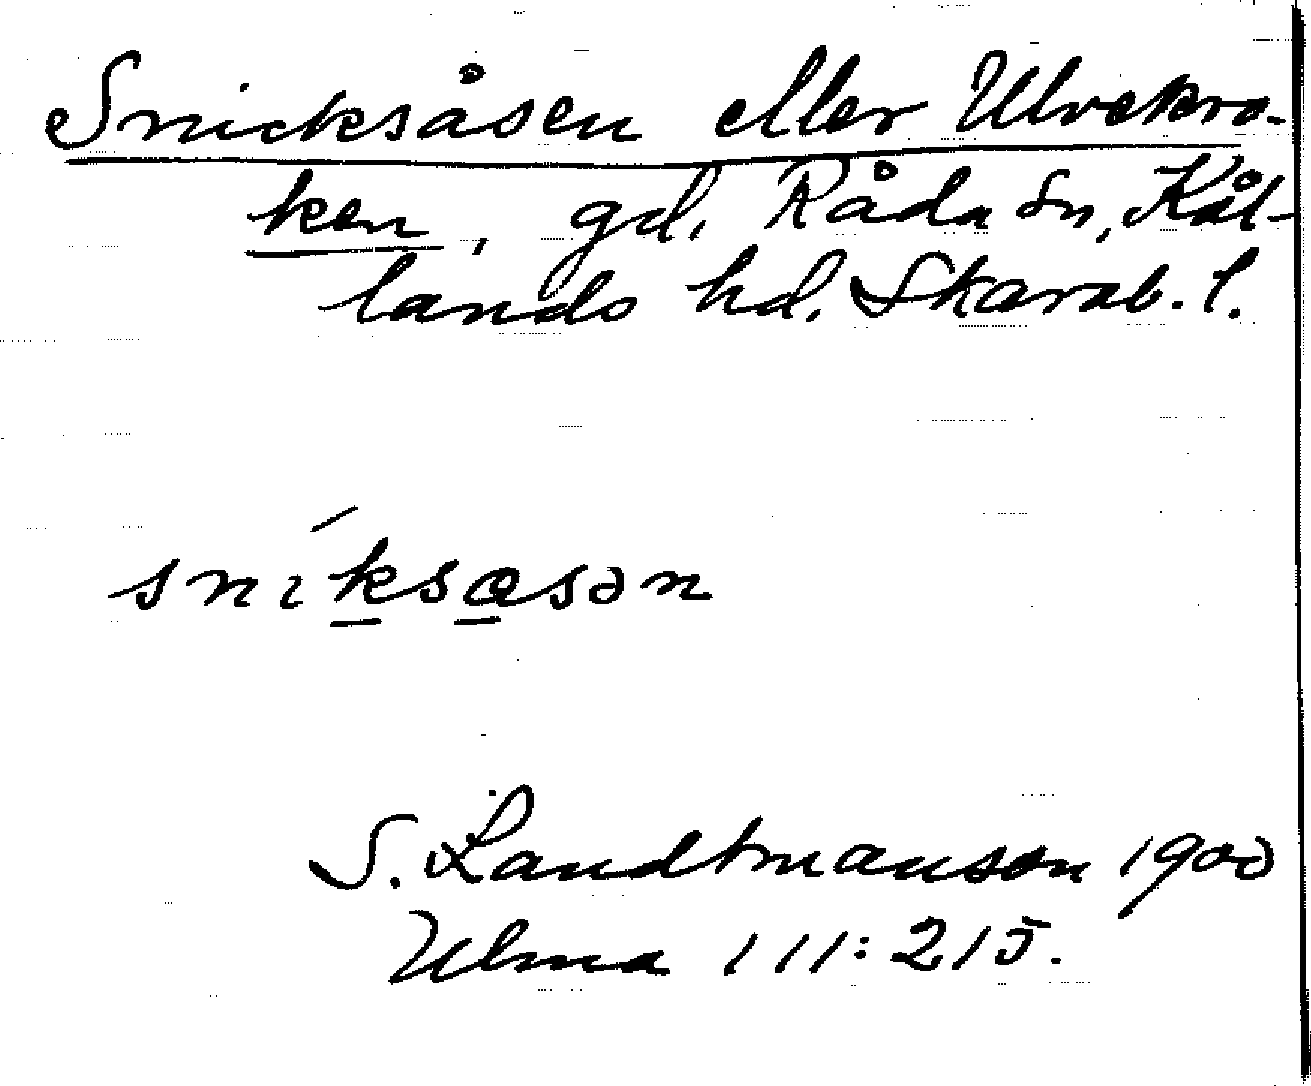 Snicksåsen eller Ulvekro-
ken, gd, Råda sn, Kål-
lands hd. Skarab. l.
sníksɑsən
S. Landtmanson 1900
Ulma 111:215.